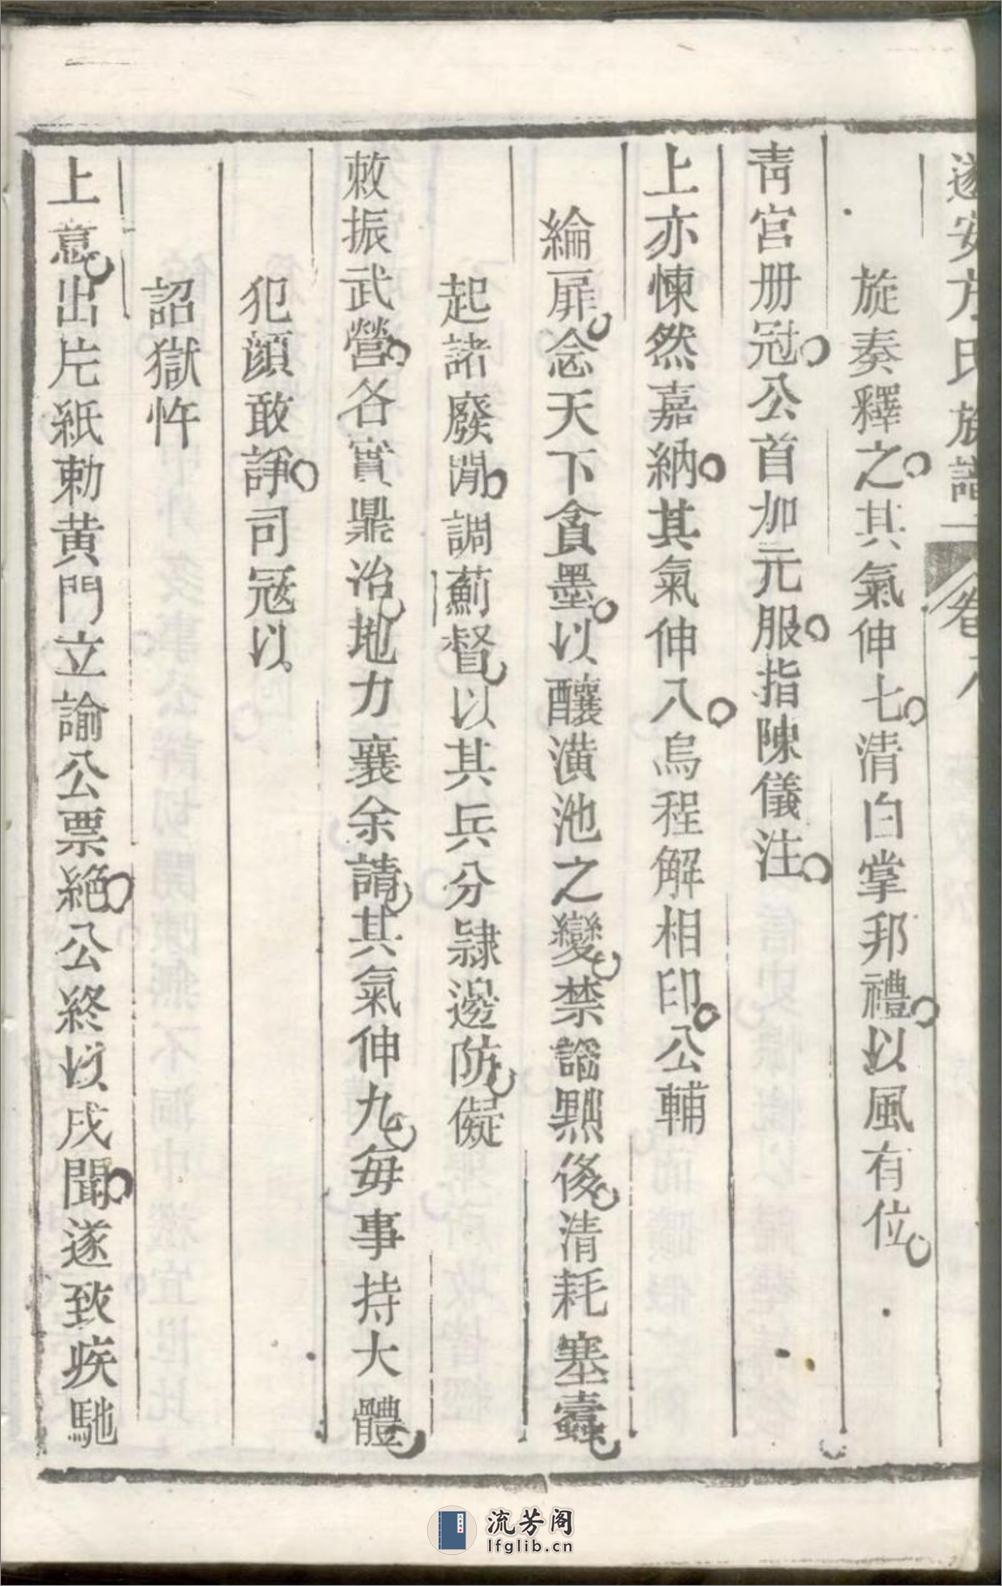 遂安方氏族譜 卷八
旋奏釋之其氣伸七清白掌邦禮以風有位
青宮册冠公首加元服指陳儀注
上亦悚然嘉納其氣伸八烏程解相印公輔
綸扉念天下貪墨以釀潢池之變禁謟黙後清耗塞蠹
起諸廢閒調薊督以其兵分隷邊防儗
敕振武營各實鼎治地力襄余請其氣伸九毎事持大體
犯顔敢諍司冦以
詔獄忤
上意出片紙勅黄門立諭公票絶公終以戍聞遂致疾馳
流芳阁
lfglib.cn